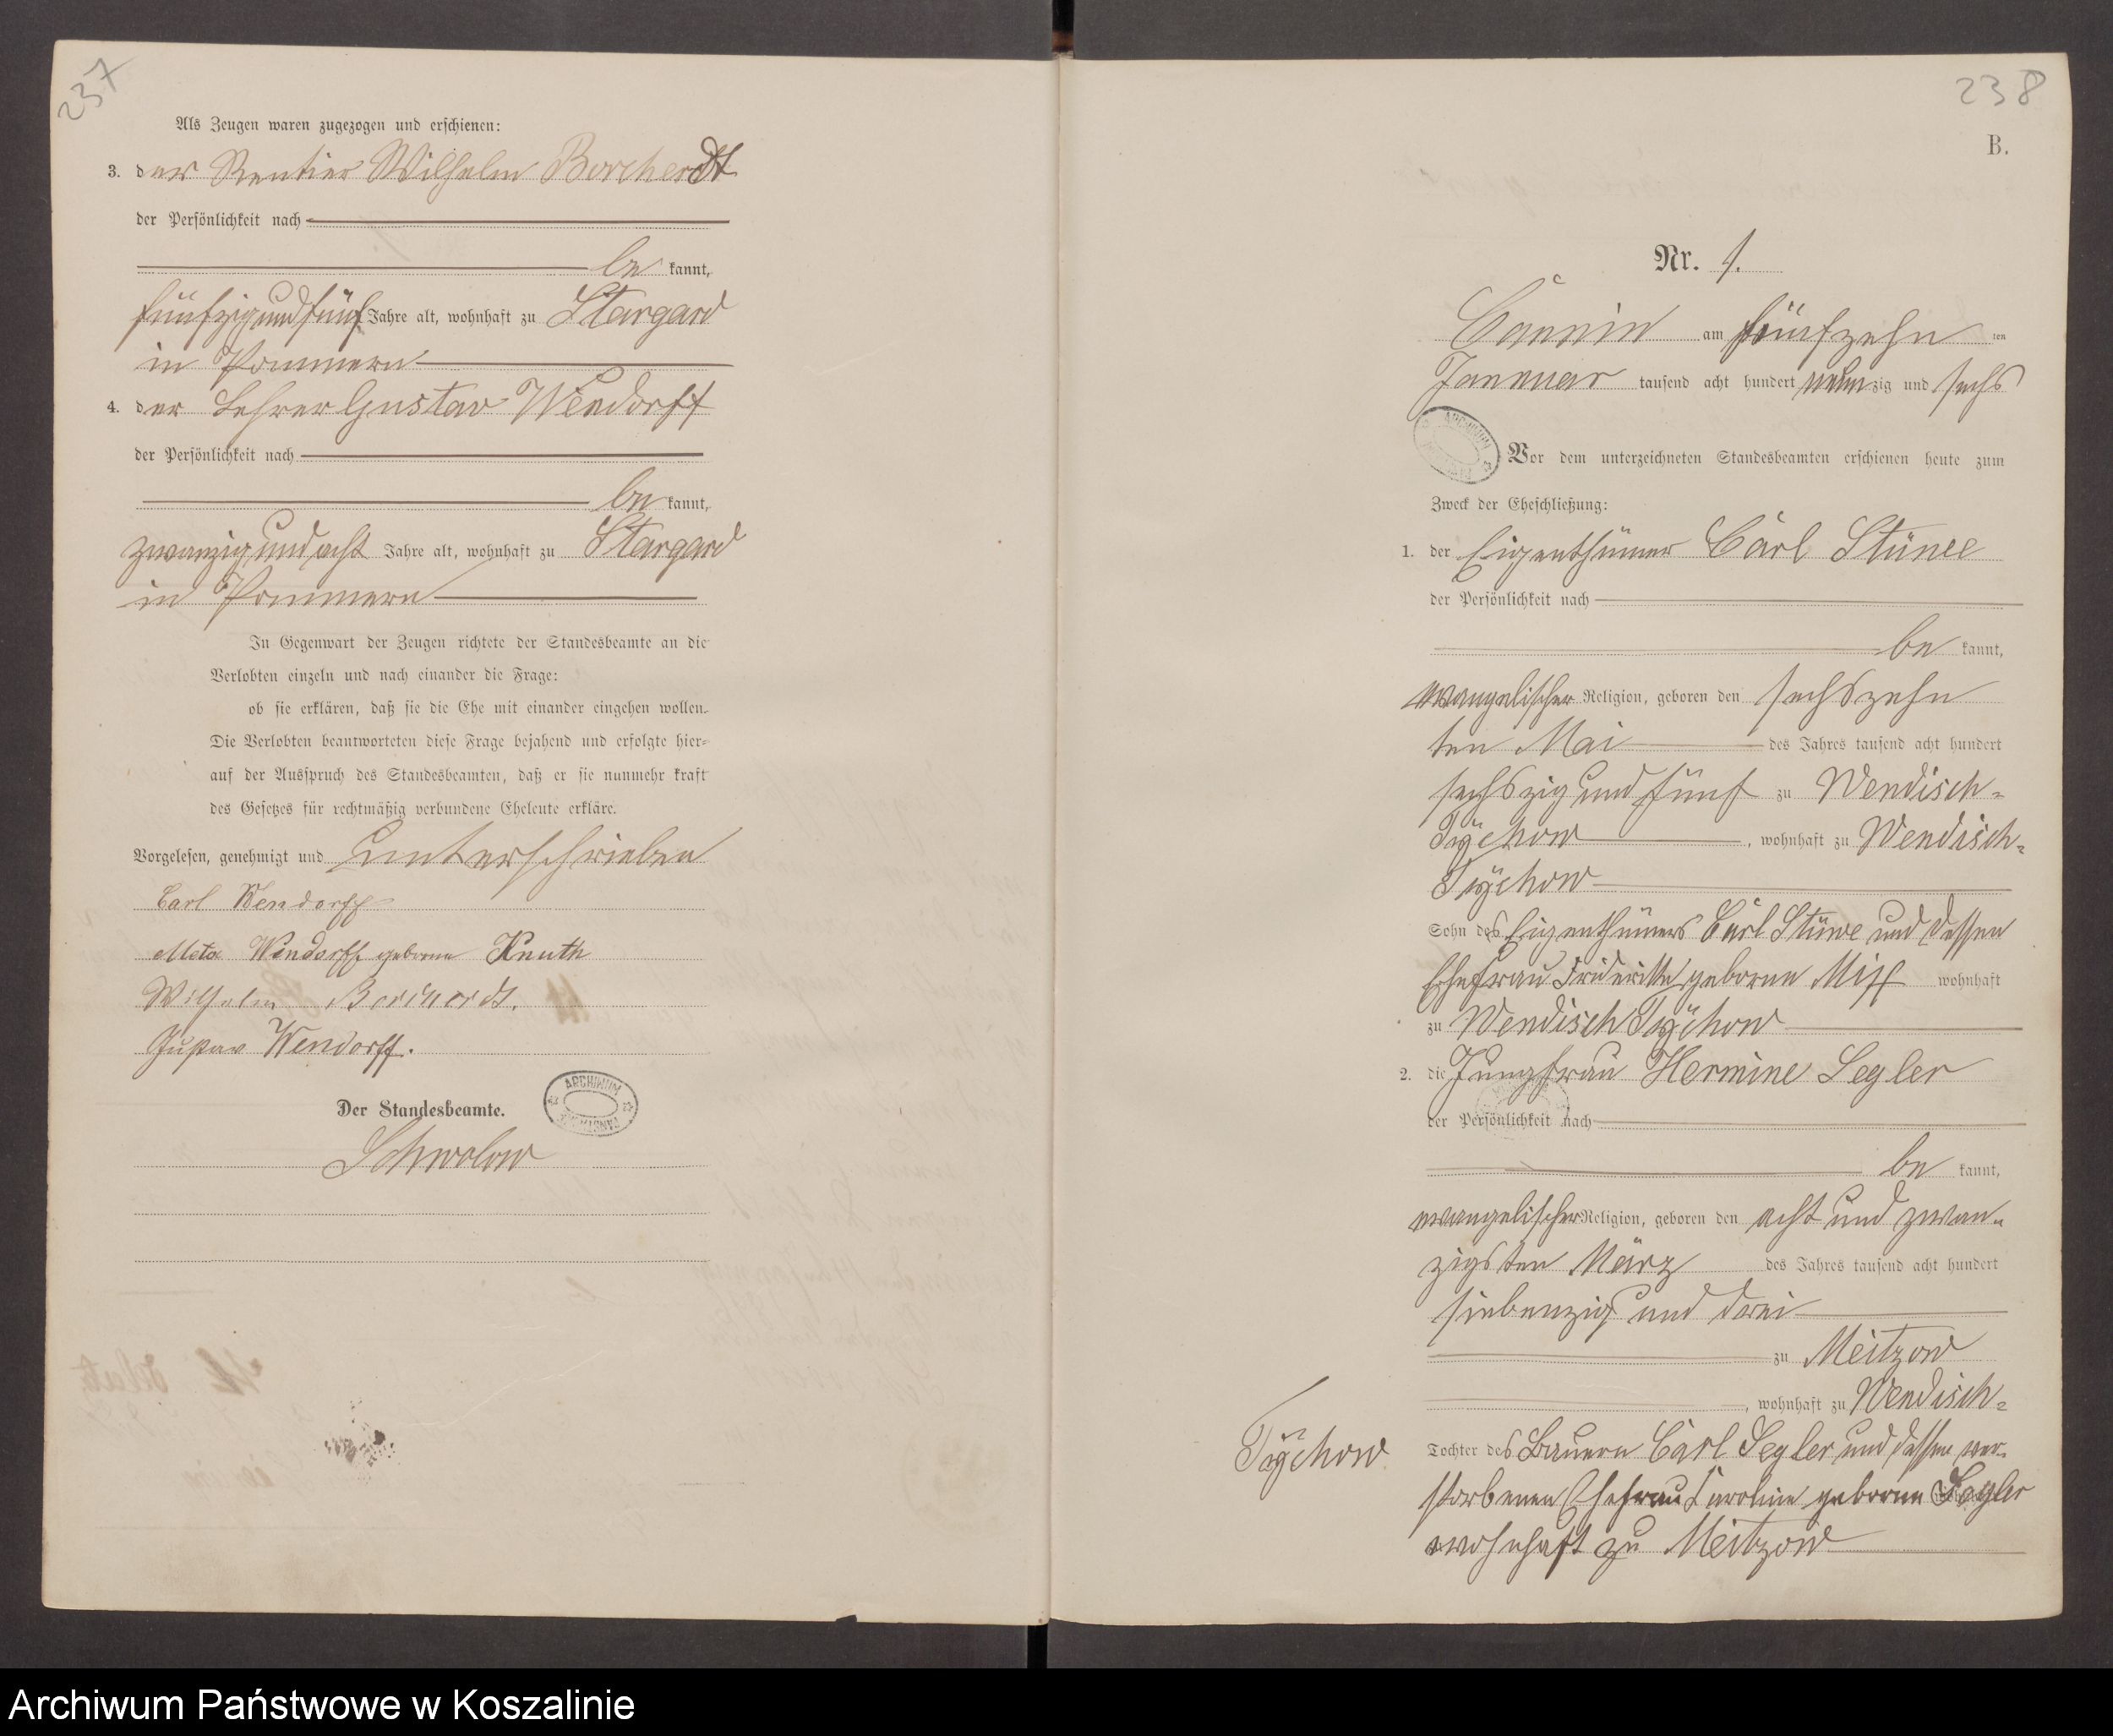 237
Als Zeugen waren zugezogen und erschienen:
3. der Rentier Wilhelm Borcherdt
der Persönlichkeit nach
be kannt,
fünfzig und fünf Jahre alt, wohnhaft zu Stargard
in Pommern
4. der Lehrer Gustav Wendorff
der Persönlichkeit nach
be kannt,
zwanzig und acht Jahre alt, wohnhaft zu Stargard
in Pommern
In Gegenwart der Zeugen richtete der Standesbeamte an die
Verlobten einzeln und nach einander die Frage:
ob sie erklären, daß sie die Ehe mit einander eingehen wollen.
Die Verlobten beantworteten diese Frage bejahend und erfolgte hier-
auf der Ausspruch des Standesbeamten, daß er sie nunmehr kraft
des Gesetzes für rechtmäßig verbundene Eheleute erkläre.
Vorgelesen, genehmigt und unterschrieben
Carl Wendorff
Meta Wendorff geborene Knuth
Wilhelm Borcherdt.
Gustav Wendorff.
Der Standesbeamte.
ARCHIWUM
238
B.
Nr. 1.
Cannin am fünfzehn ten
Januar tausend acht hundert neunzig und sechs
ARCHIWUM
Vor dem unterzeichneten Standesbeamten erschienen heute zum
Zweck der Eheschließung:
1. der Eigenthümer Carl Stüwe
der Persönlichkeit nach
be kannt,
evangelischer Religion, geboren den sechszehn
ten Mai des Jahres tausend acht hundert
sechszig und fünf zu Wendisch-
Tÿchow, wohnhaft zu Wendisch-
Tÿchow
Sohn des Eigenthümers Carl Stüwe und dessen
Ehefrau geborene wohnhaft
zu Wendisch Tÿchow
2. die Jungfrau Hermine Segler
der Persönlichkeit nach
be kannt,
evangelischer Religion, geboren den acht und zwan-
zigsten März des Jahres tausend acht hundert
siebenzig und drei
zu Meitzow
, wohnhaft zu Wendisch-
Tÿchow
Tochter des Bauern Carl Segler und dessen ver-
storbenen Ehefrau Caroline geborene Segler
wohnhaft zu Meitzow
Archiwum Państwowe w Koszalinie